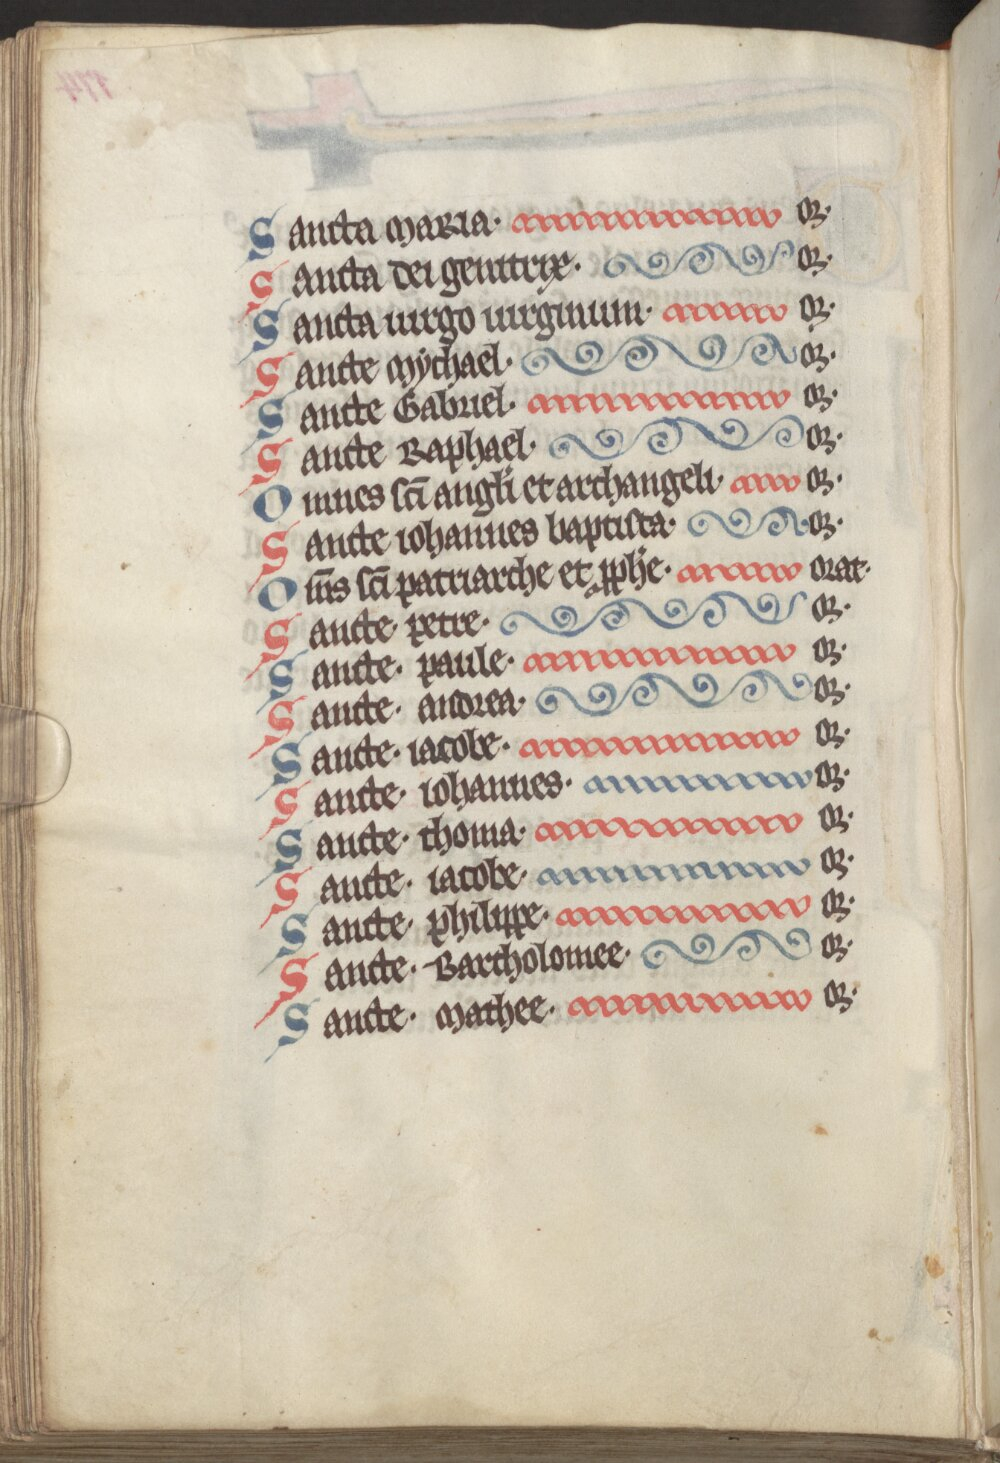 Sancta maria· oꝝ·
Sancta dei genitrix· oꝝ·
Sancta uirgo uirginum· oꝝ·
Sancte mychael· oꝝ·
Sancte Gabriel· oꝝ·
Sancte Raphael· oꝝ·
Omnes sc̄i angl̓i et archangeli· oꝝ·
Sancte iohannes baptista· oꝝ·
Om̄s sc̄i patriarche et ꝓph̓e· orate·
Sancte· petre· oꝝ·
Sancte· paule· oꝝ·
Sancte· andrea· oꝝ·
Sancte· iacobe· oꝝ·
Sancte· iohannes· oꝝ·
Sancte· thoma· oꝝ·
Sancte· iacobe· oꝝ·
Sancte· philippe· oꝝ·
Sancte· Bartholomee· oꝝ·
Sancte· mathee· oꝝ·